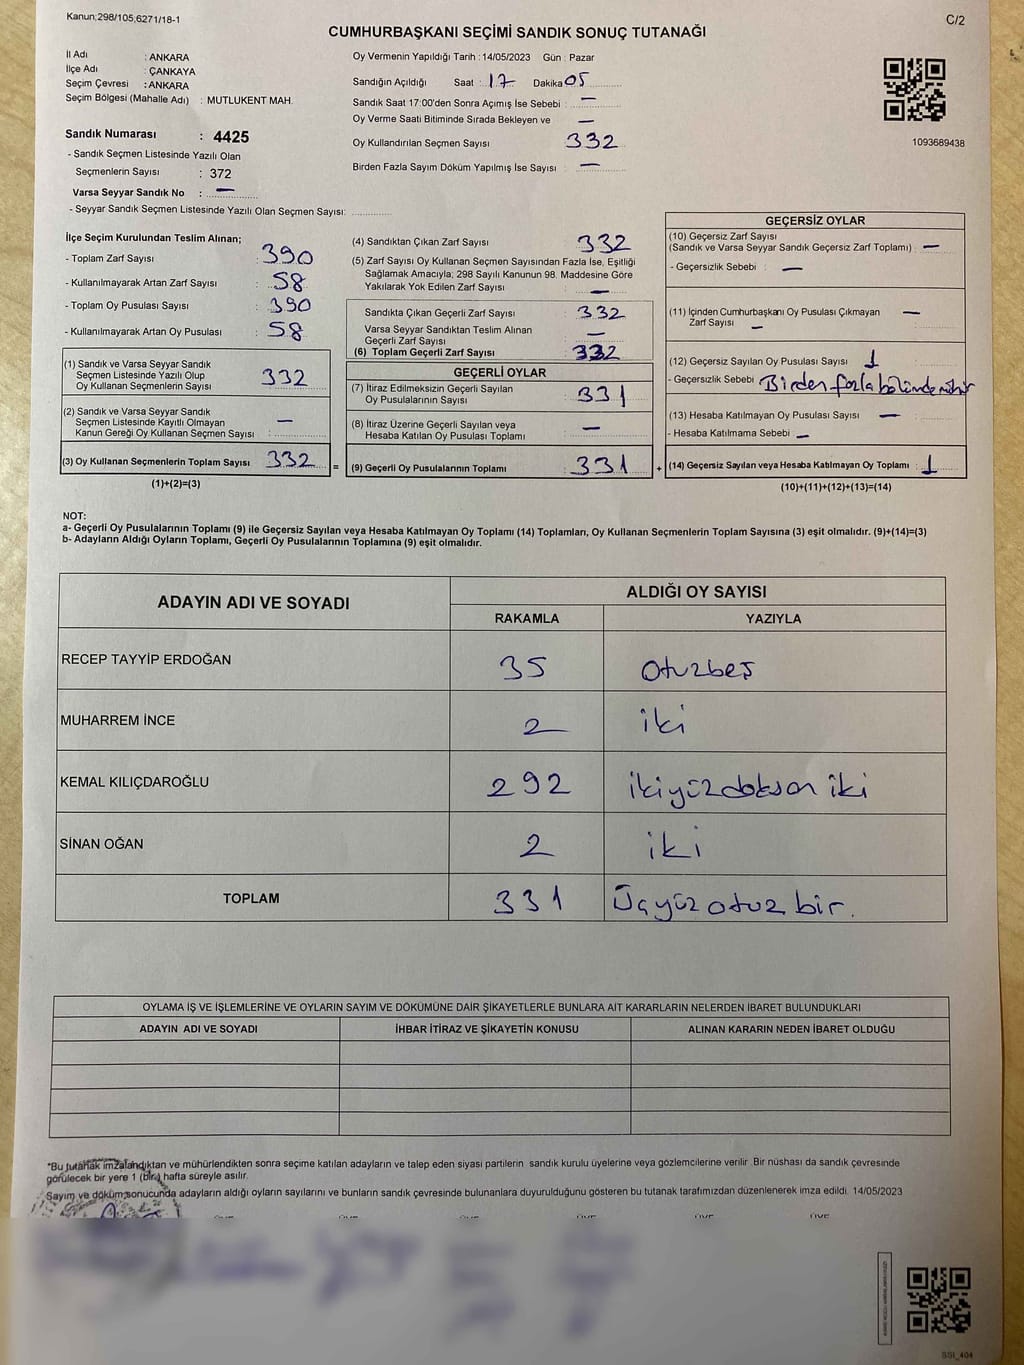 Kanun;298/105;6271/18-1
C/2
CUMHURBAŞKANI SEÇİMİ SANDIK SONUÇ TUTANAĞI
İl Adı : ANKARA
İlçe Adı : ÇANKAYA
Seçim Çevresi : ANKARA
Seçim Bölgesi (Mahalle Adı) : MUTLUKENT MAH.
Sandık Numarası : 4425
- Sandık Seçmen Listesinde Yazılı Olan
Seçmenlerin Sayısı : 372
Varsa Seyyar Sandık No : —
- Seyyar Sandık Seçmen Listesinde Yazılı Olan Seçmen Sayısı:
Oy Vermenin Yapıldığı Tarih : 14/05/2023 Gün : Pazar
Sandığın Açıldığı Saat : 17 Dakika 05
Sandık Saat 17:00'den Sonra Açımış İse Sebebi : —
Oy Verme Saati Bitiminde Sırada Bekleyen ve —
Oy Kullandırılan Seçmen Sayısı 332
Birden Fazla Sayım Döküm Yapılmış İse Sayısı : —
1093689438
İlçe Seçim Kurulundan Teslim Alınan;
- Toplam Zarf Sayısı : 390
- Kullanılmayarak Artan Zarf Sayısı : 58
- Toplam Oy Pusulası Sayısı : 390
- Kullanılmayarak Artan Oy Pusulası : 58
(1) Sandık ve Varsa Seyyar Sandık
Seçmen Listesinde Yazılı Olup
Oy Kullanan Seçmenlerin Sayısı : 332
(2) Sandık ve Varsa Seyyar Sandık
Seçmen Listesinde Kayıtlı Olmayan
Kanun Gereği Oy Kullanan Seçmen Sayısı : —
(3) Oy Kullanan Seçmenlerin Toplam Sayısı 332
(1)+(2)=(3)
(4) Sandıktan Çıkan Zarf Sayısı : 332
(5) Zarf Sayısı Oy Kullanan Seçmen Sayısından Fazla İse, Eşitliği
Sağlamak Amacıyla; 298 Sayılı Kanunun 98. Maddesine Göre
Yakılarak Yok Edilen Zarf Sayısı : —
Sandıkta Çıkan Geçerli Zarf Sayısı : 332
Varsa Seyyar Sandıktan Teslim Alınan
Geçerli Zarf Sayısı : —
(6) Toplam Geçerli Zarf Sayısı : 332
GEÇERLİ OYLAR
(7) İtiraz Edilmeksizin Geçerli Sayılan
Oy Pusulalarının Sayısı : 331
(8) İtiraz Üzerine Geçerli Sayılan veya
Hesaba Katılan Oy Pusulası Toplamı : —
= (9) Geçerli Oy Pusulalarının Toplamı : 331 +
GEÇERSİZ OYLAR
(10) Geçersiz Zarf Sayısı
(Sandık ve Varsa Seyyar Sandık Geçersiz Zarf Toplamı) : —
- Geçersizlik Sebebi : —
(11) İçinden Cumhurbaşkanı Oy Pusulası Çıkmayan —
Zarf Sayısı —
(12) Geçersiz Sayılan Oy Pusulası Sayısı : 1
- Geçersizlik Sebebi : Birden fazla bölümde mühür
(13) Hesaba Katılmayan Oy Pusulası Sayısı : —
- Hesaba Katılmama Sebebi : —
(14) Geçersiz Sayılan veya Hesaba Katılmayan Oy Toplamı : 1
(10)+(11)+(12)+(13)=(14)
NOT:
a- Geçerli Oy Pusulalarının Toplamı (9) ile Geçersiz Sayılan veya Hesaba Katılmayan Oy Toplamı (14) Toplamları, Oy Kullanan Seçmenlerin Toplam Sayısına (3) eşit olmalıdır. (9)+(14)=(3)
b- Adayların Aldığı Oyların Toplamı, Geçerli Oy Pusulalarının Toplamına (9) eşit olmalıdır.
ADAYIN ADI VE SOYADI
ALDIĞI OY SAYISI
RAKAMLA YAZIYLA
RECEP TAYYİP ERDOĞAN 35 otuzbeş
MUHARREM İNCE 2 iki
KEMAL KILIÇDAROĞLU 292 ikiyüzdoksan iki
SİNAN OĞAN 2 iki
TOPLAM 331 Üçyüz otuz bir.
OYLAMA İŞ VE İŞLEMLERİNE VE OYLARIN SAYIM VE DÖKÜMÜNE DAİR ŞİKAYETLERLE BUNLARA AİT KARARLARIN NELERDEN İBARET BULUNDUKLARI
ADAYIN ADI VE SOYADI İHBAR İTİRAZ VE ŞİKAYETİN KONUSU ALINAN KARARIN NEDEN İBARET OLDUĞU
*Bu tutanak imzalandıktan ve mühürlendikten sonra seçime katılan adayların ve talep eden siyasi partilerin sandık kurulu üyelerine veya gözlemcilerine verilir. Bir nüshası da sandık çevresinde
görülecek bir yere 1 (bir) hafta süreyle asılır.
Sayım ve döküm sonucunda adayların aldığı oyların sayılarını ve bunların sandık çevresinde bulunanlara duyurulduğunu gösteren bu tutanak tarafımızdan düzenlenerek imza edildi. 14/05/2023
ÜYE ÜYE ÜYE ÜYE ÜYE ÜYE
SSİ_404